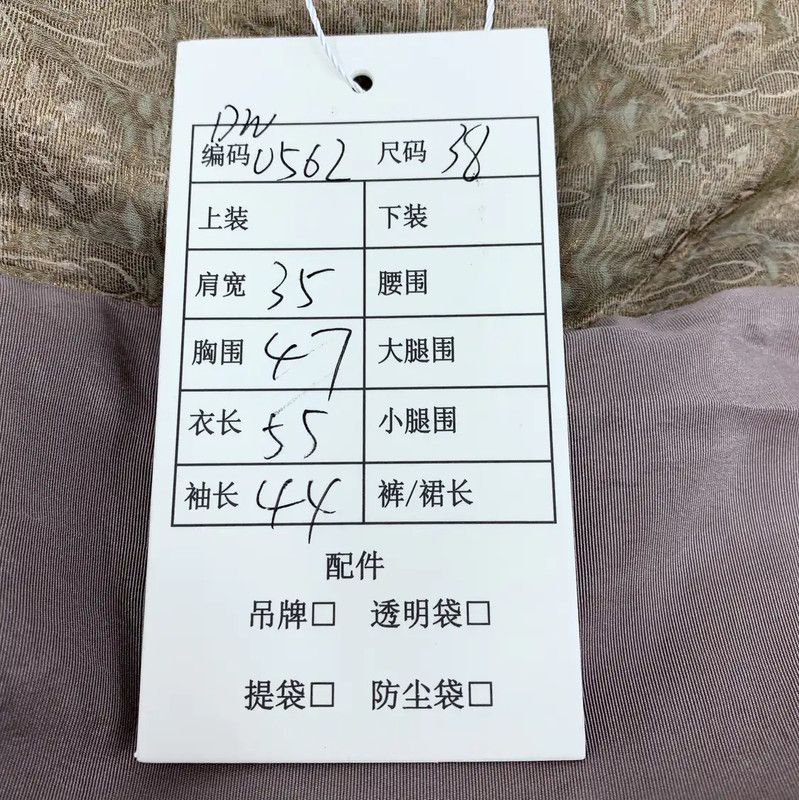 DW
编码 0562 尺码 38
上装 下装
肩宽 35 腰围
胸围 47 大腿围
衣长 55 小腿围
袖长 44 裤/裙长
配件
吊牌□ 透明袋□
提袋□ 防尘袋□